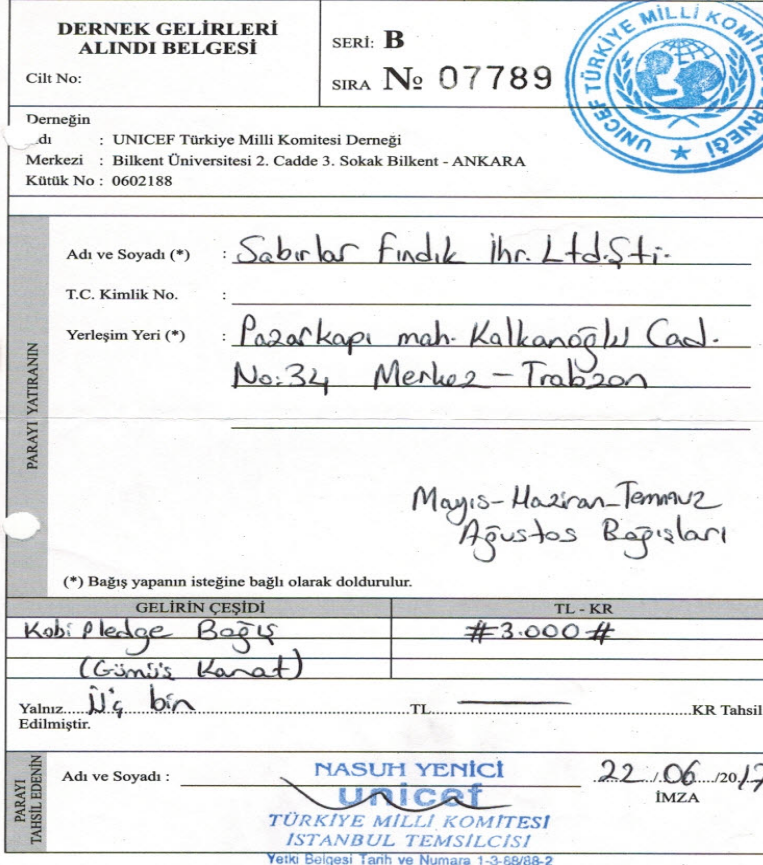 DERNEK GELİRLERİ
ALINDI BELGESİ
Cilt No:
SERİ: B
SIRA № 07789
UNICEF TÜRKİYE MİLLİ KOMİTESİ DERNEĞİ
Derneğin
: UNICEF Türkiye Milli Komitesi Derneği
Merkezi : Bilkent Üniversitesi 2. Cadde 3. Sokak Bilkent - ANKARA
Kütük No : 0602188
PARAYI YATIRANIN
Adı ve Soyadı (*) : Sabırlar Fındık İhr. Ltd.Şti.
T.C. Kimlik No. :
Yerleşim Yeri (*) : Pazarkapı mah. Kalkanoğlu Cad.
No:34 Merkez - Trabzon
Mayıs-Haziran-Temmuz
Ağustos Bağışları
(*) Bağış yapanın isteğine bağlı olarak doldurulur.
GELİRİN ÇEŞİDİ TL - KR
Kobi Pledge Bağış #3.000#
(Gümüş Kanat)
Yalnız Üç bin TL KR Tahsil
Edilmiştir.
PARAYI
TAHSİL EDENİN
Adı ve Soyadı : NASUH YENİCİ
unicef
TÜRKİYE MİLLİ KOMİTESİ
İSTANBUL TEMSİLCİSİ
Yetki Belgesi Tarih ve Numara 1-3-88/88-2
22/06/2017
İMZA